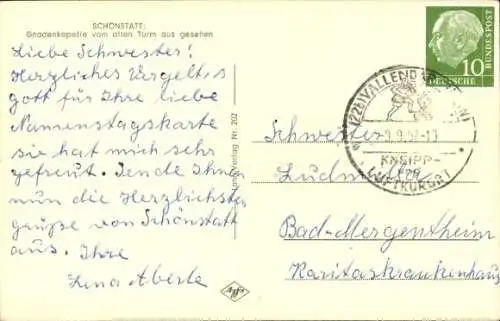 SCHÖNSTATT:
Gnadenkapelle vom alten Turm aus gesehen
Liebe Schwester!
Herzliches Vergelt,s
gott für Ihre liebe
Namenstagskarte
sie hat mich sehr
gefreut. Sende Ihnen
nun die Herzlichsten
grüße von Schönstatt
aus. Ihre
Lena Aberle
Verlag Nr. 202
Agfa
10
DEUTSCHE
BUNDESPOST
(22b) VALLENDAR
KNEIPP-
UND
LUFTKURORT
Schwester
Ludmilla
Bad-Mergentheim
Karitaskrankenhaus